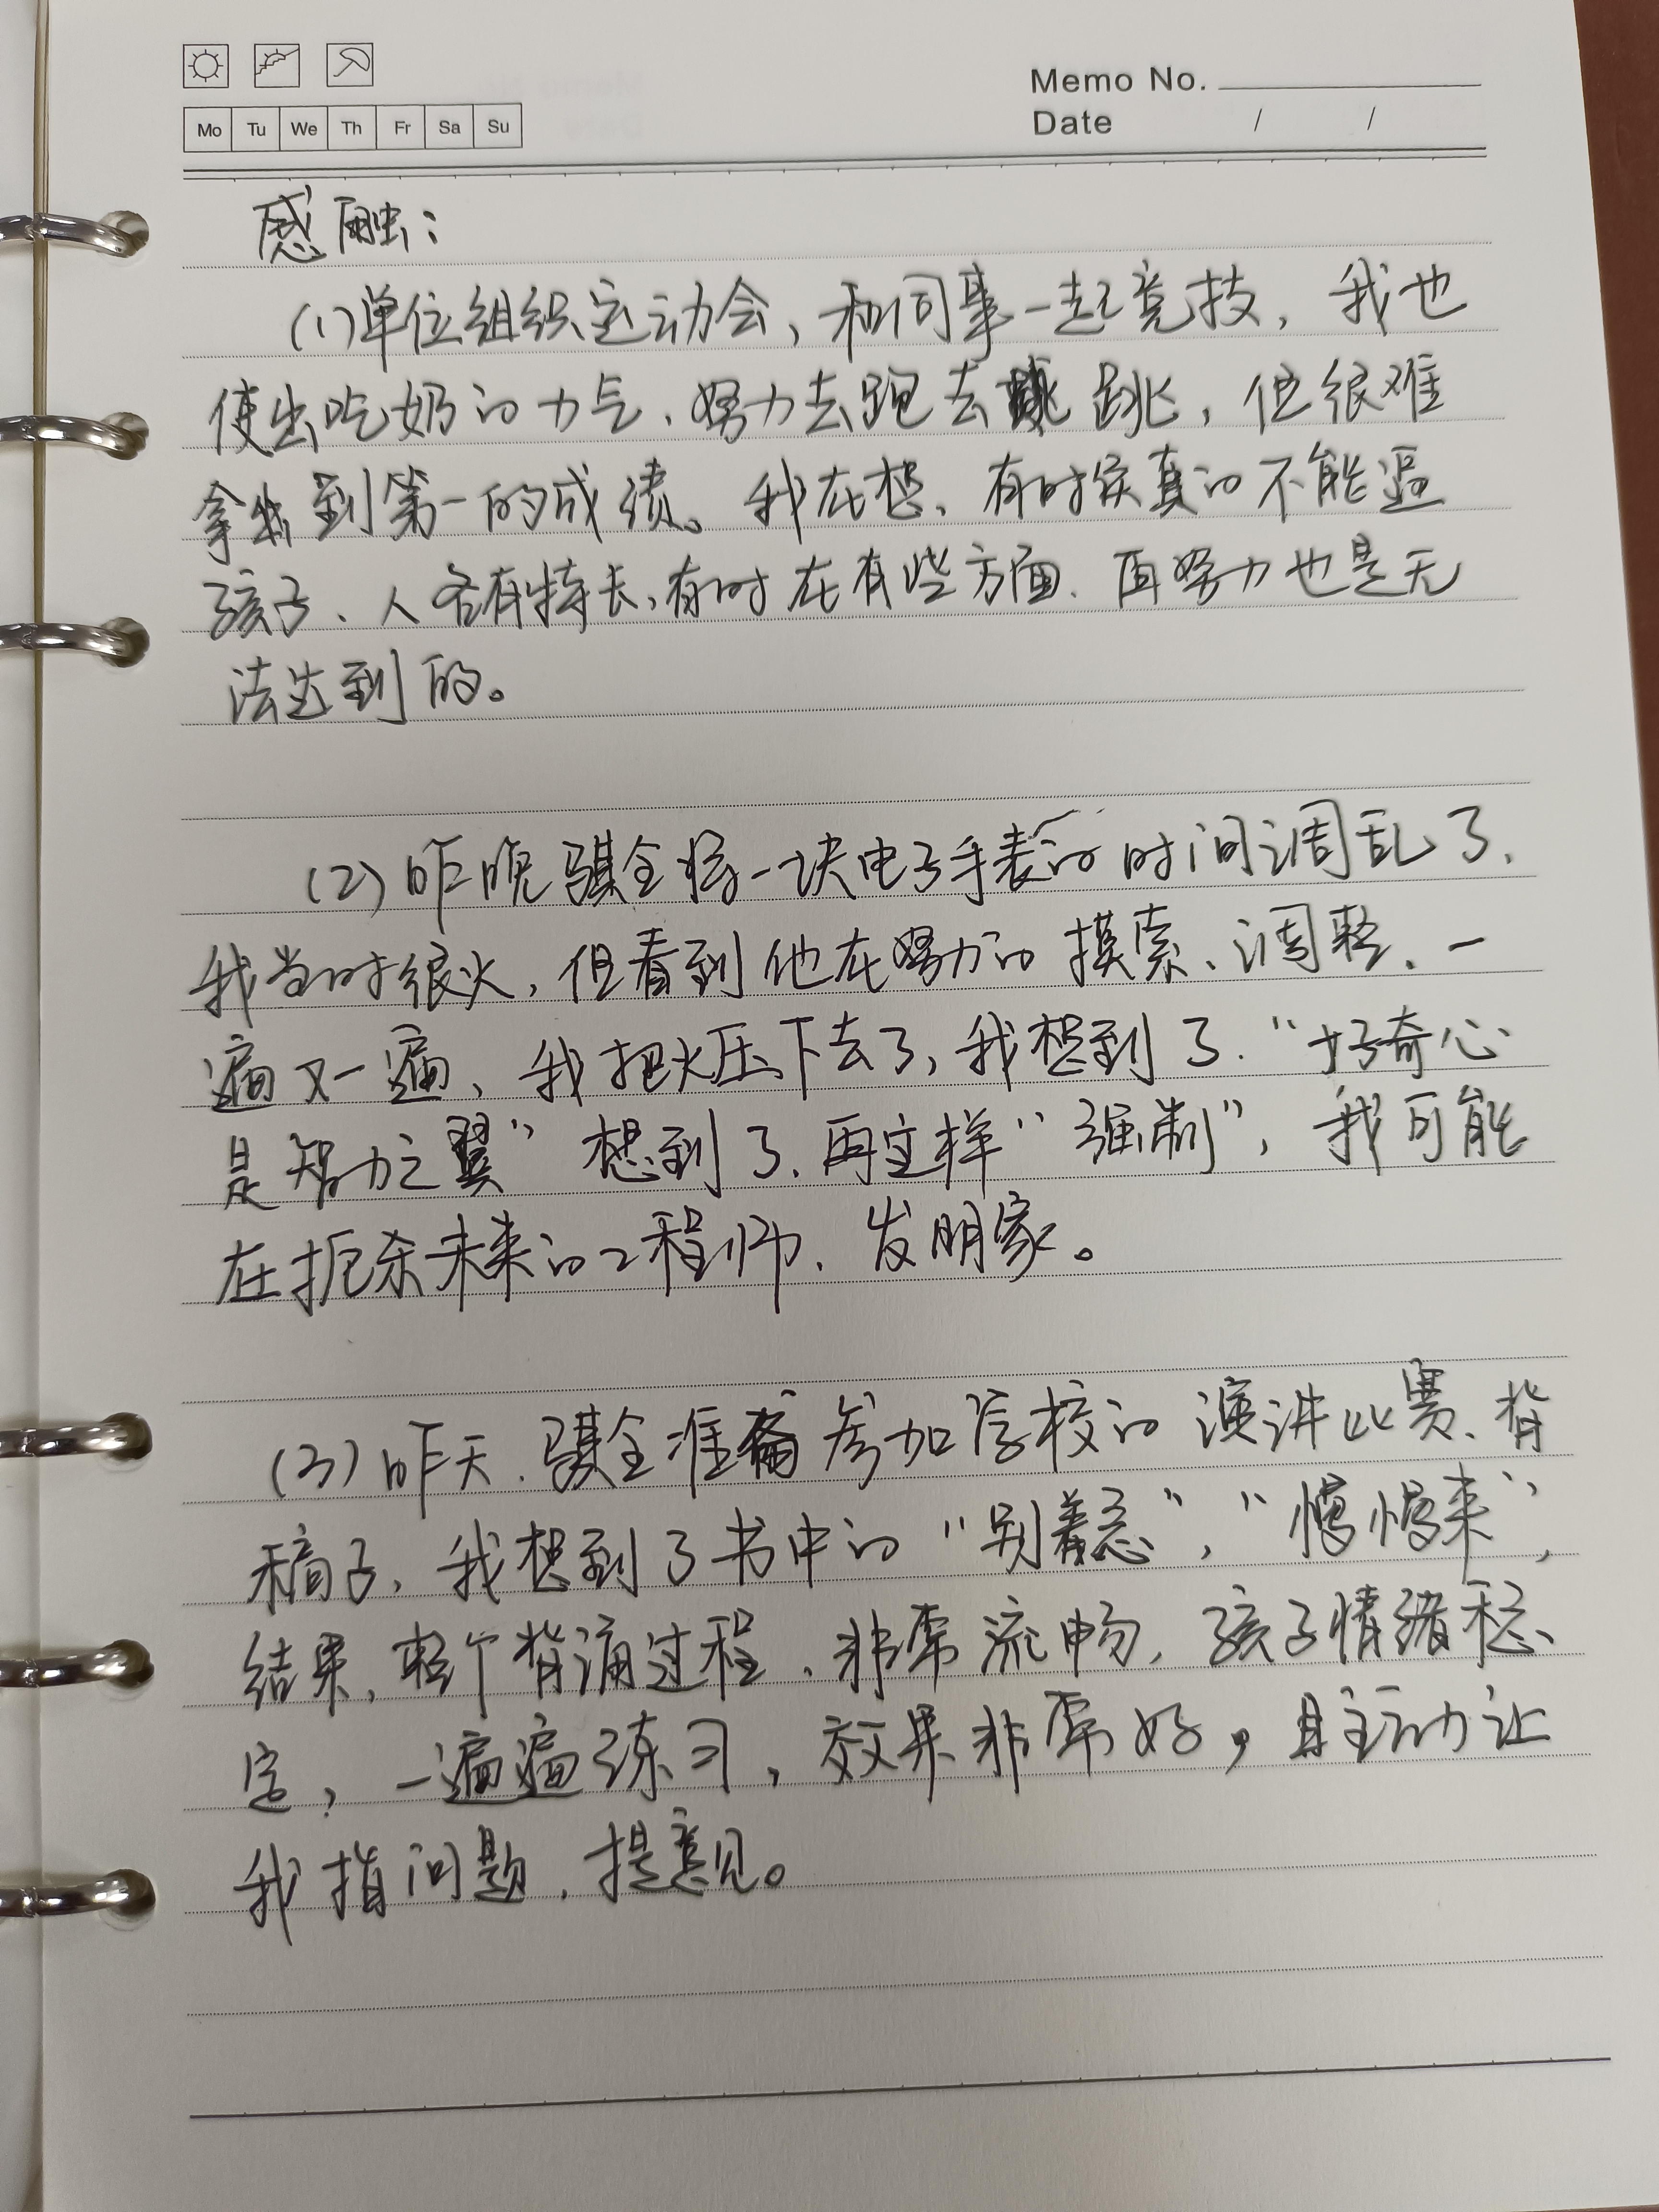 Memo No.
Mo Tu We Th Fr Sa Su
Date / /
感触：
(1)单位组织运动会，和同事一起竞技，我也
使出吃奶的力气、努力去跑去跳，但很难
拿到第一的成绩。我在想、有时候真的不能逼
孩子、人各有特长，有时在有些方面、再努力也是无
法达到的。
(2)昨晚骐全将一块电子手表的时间调乱了、
我当时很火，但看到他在努力的摸索、调整、一
遍又一遍、我把火压下去了，我想到了、“好奇心
是智力之翼”想到了、再这样“强制”，我可能
在扼杀未来的工程师、发明家。
(3)昨天、骐全准备参加学校的演讲比赛、背
稿子，我想到了书中的“别着急”，“慢慢来”，
结果、整个背诵过程、非常流畅，孩子情绪稳
定，一遍遍练习，效果非常好，且主动让
我指问题、提意见。